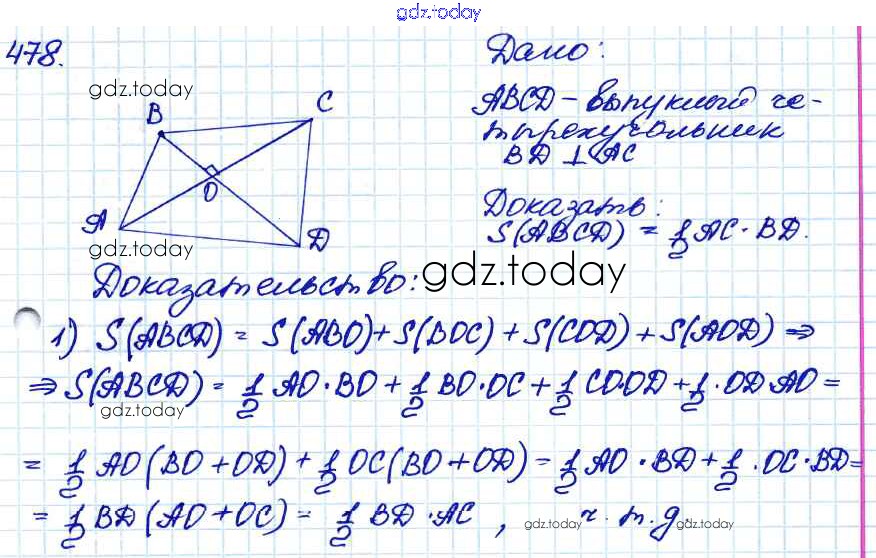 gdz.today
478.
Дано:
gdz.today
ABCD – выпуклый че-
тырехугольник
BD ⊥ AC
B
C
O
A
D
Доказать:
S(ABCD) = 1/2 AC · BD.
gdz.today
Доказательство: gdz.today
1) S(ABCD) = S(ABO) + S(BOC) + S(COD) + S(AOD) ⇒
⇒ S(ABCD) = 1/2 AO · BO + 1/2 BO · OC + 1/2 CO·OD + 1/2 · OD·AO =
gdz.today
= 1/2 AO (BO + OD) + 1/2 OC (BO + OD) = 1/2 AO · BD + 1/2 · OC · BD =
= 1/2 BD (AO + OC) = 1/2 BD · AC , ч.т.д.
gdz.today gdz.today